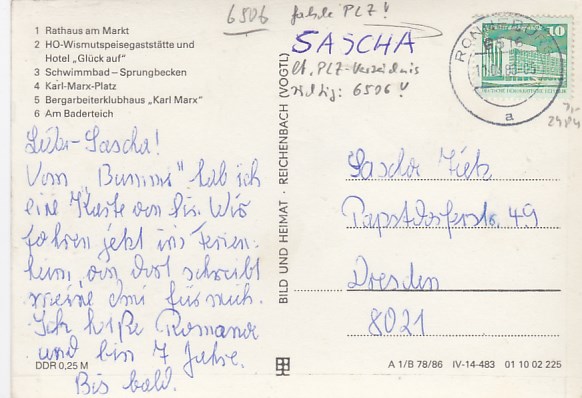 6506 falsche PLZ!
SASCHA
lt. PLZ-Verzeichnis
richtig: 6506!
1 Rathaus am Markt
2 HO-Wismutspeisegaststätte und
Hotel „Glück auf"
3 Schwimmbad – Sprungbecken
4 Karl-Marx-Platz
5 Bergarbeiterklubhaus „Karl Marx"
6 Am Baderteich
Lieber Sascha!
Vom „Bummi" hab ich
eine Karte von Dir. Wir
fahren jetzt ins Ferien-
heim, von dort schreibt
meine Omi für mich.
Ich heiße Romana
und bin 7 Jahre.
Bis bald.
DDR 0,25 M
BILD UND HEIMAT · REICHENBACH (VOGTL)
10
a
Sascha
Papstdorferstr. 49
Dresden
8021
A 1/B 78/86 IV-14-483 01 10 02 225